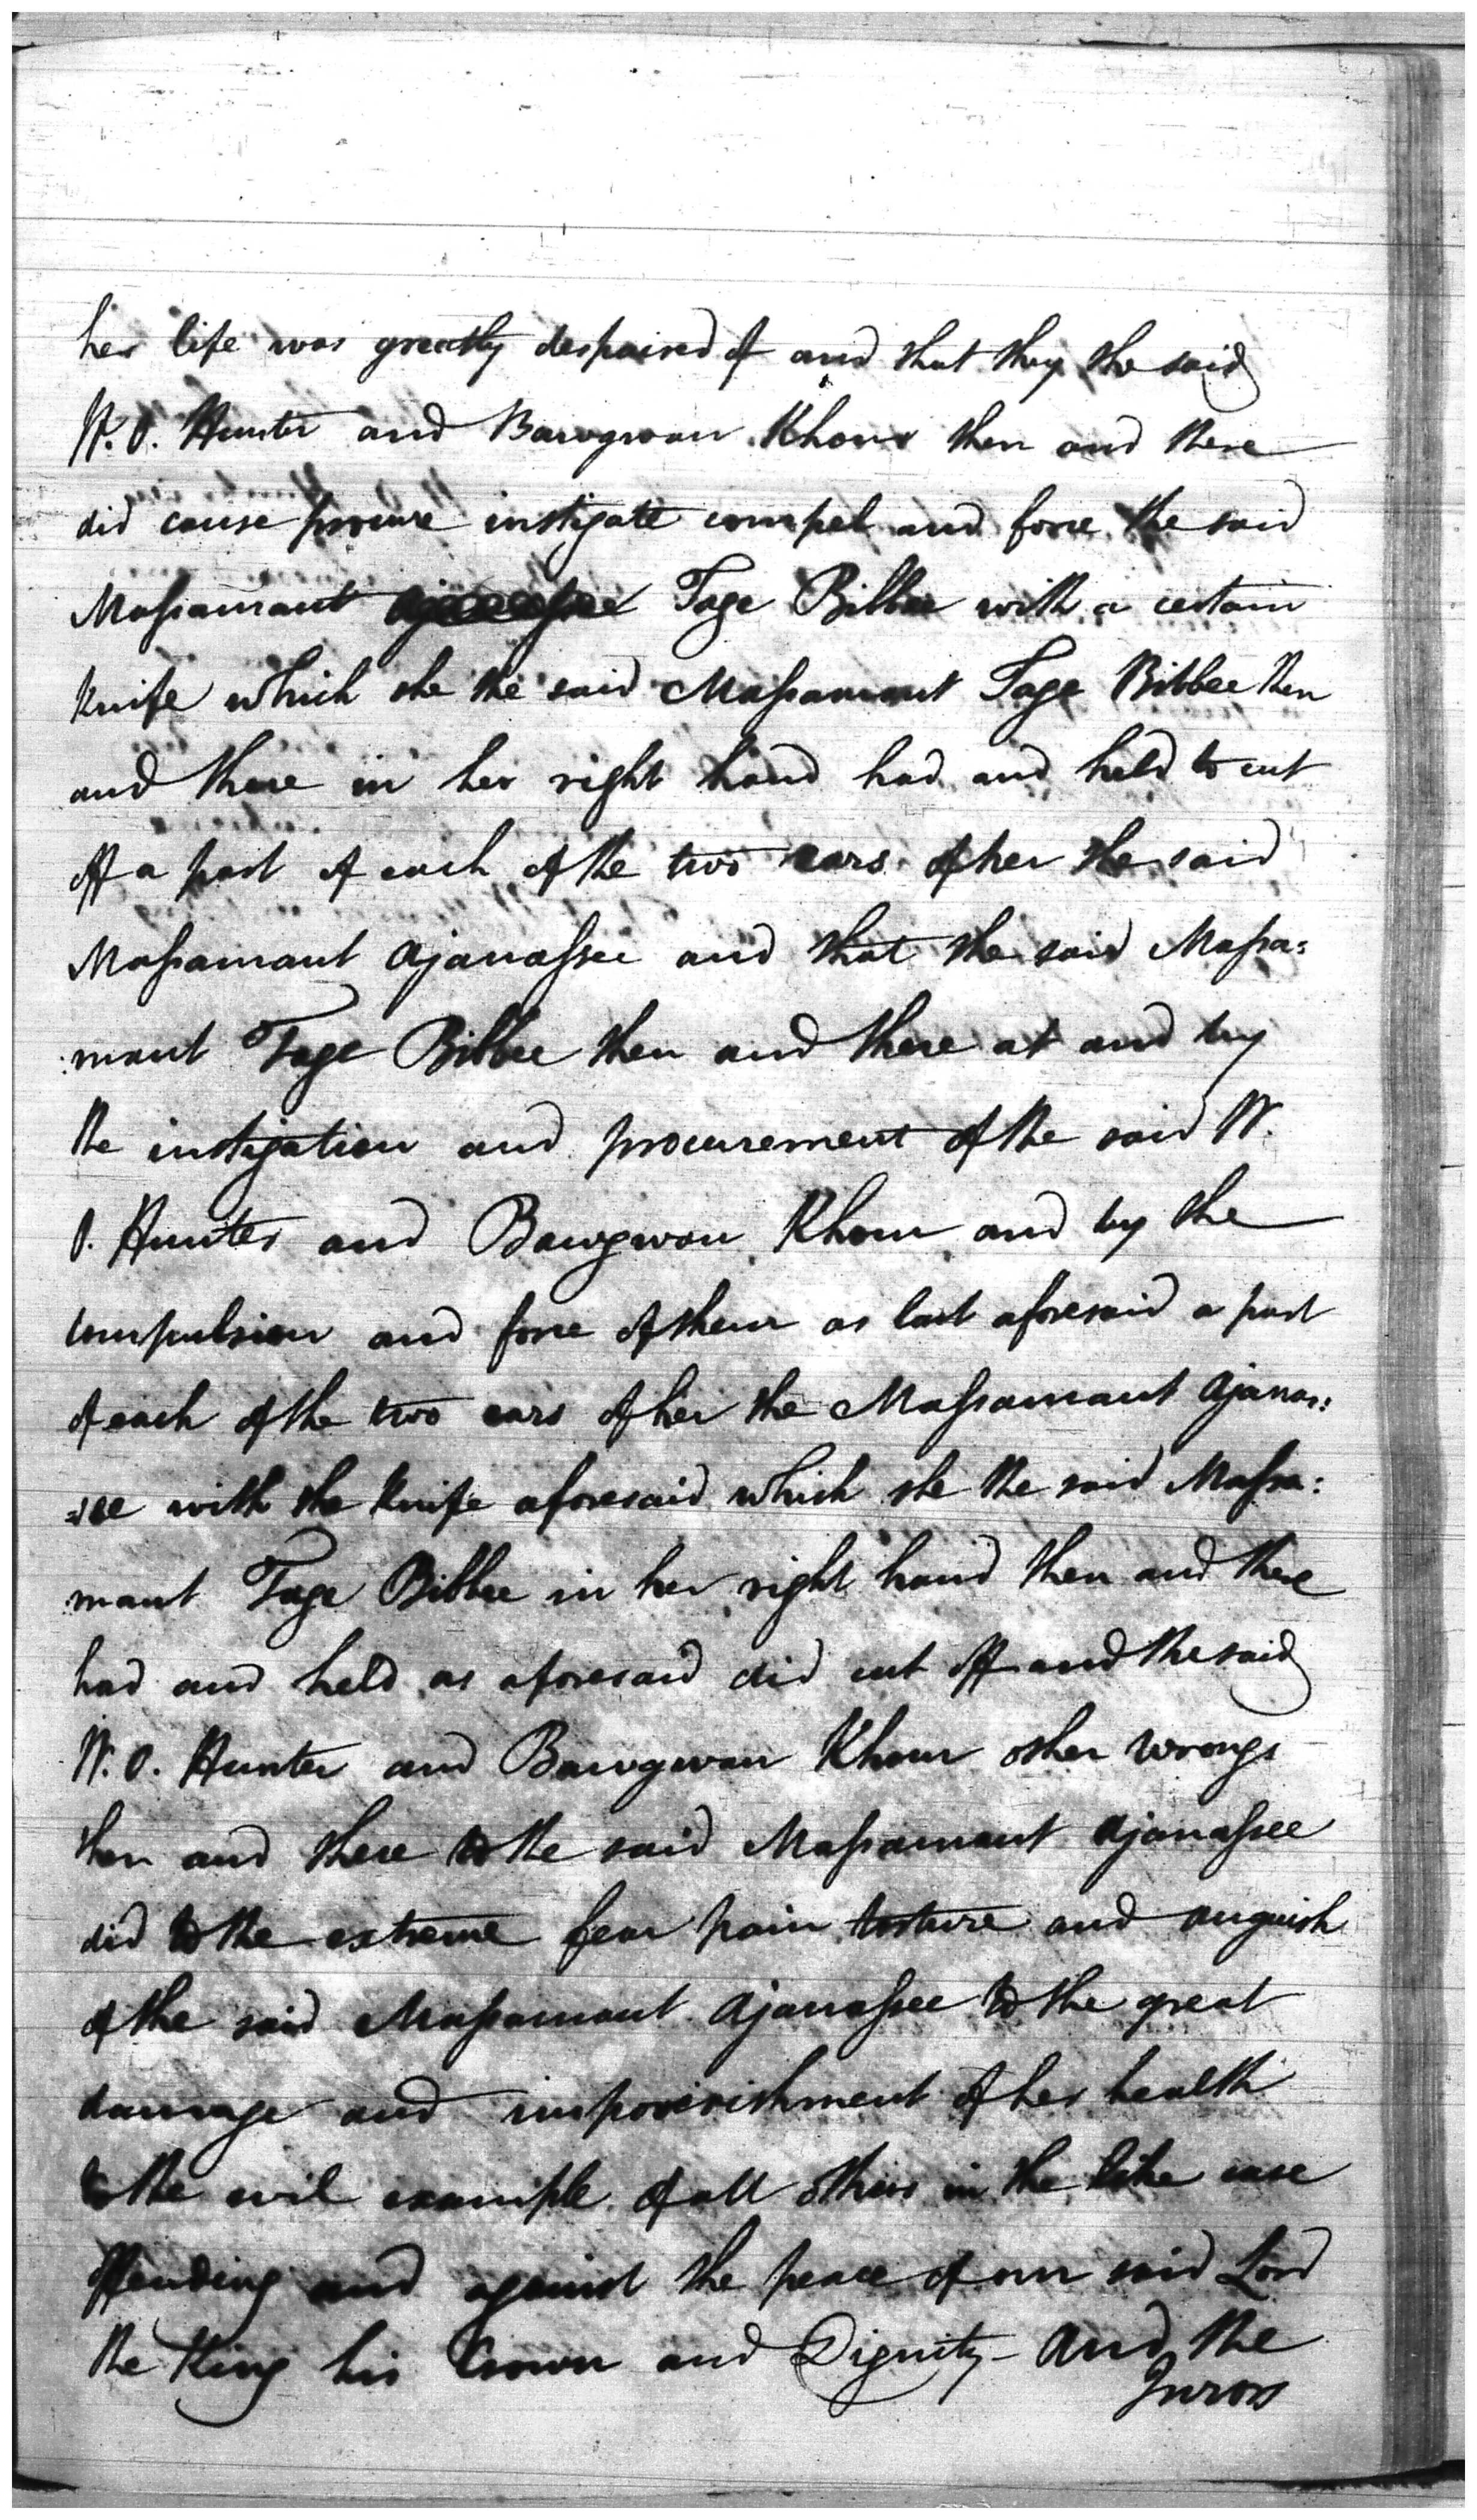 her life was greatly despaired of and that they the said
W. O. Hunter and Bawgwan Khour then and there
did cause procure instigate compel and force the said
Massamaut Tage Bibbee with a certain
knife which she the said Massamaut Tage Bibbee then
and there in her right hand had and held to cut
off a part of each of the two ears of her the said
Massamaut Ajanassee and that the said Massa=
:maut Tage Bibbee then and there at and by
the instigation and procurement of the said W.
O. Hunter and Bawgwan Khour and by the
compulsion and force of them as last aforesaid a part
of each of the two ears of her the Massamaut Ajanas:
=see with the knife aforesaid which she the said Massa:
:maut Tage Bibbee in her right hand then and there
had and held as aforesaid did cut off and the said
W. O. Hunter and Bawgwan Khour other wrongs
then and there to the said Massamaut Ajanassee
did to the extreme fear pain torture and anguish
of the said Massamaut Ajanassee to the great
damage and impoverishment of her health
to the evil example of all others in the like case
offending and against the peace of our said Lord
the King his Crown and Dignity - And the
Jurors